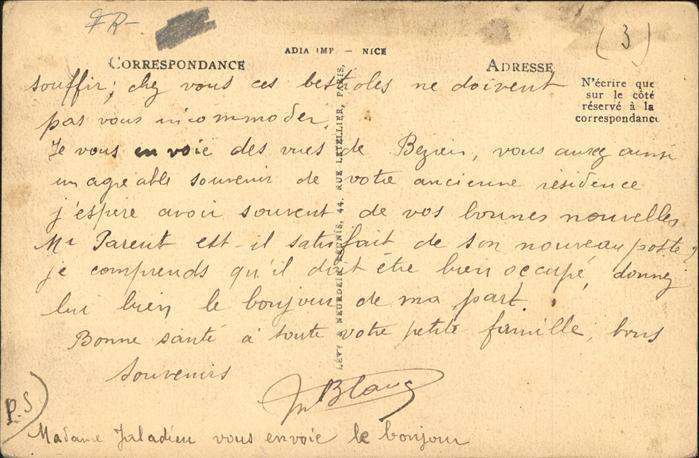 FR-
(3)
ADIA IMP - NICE
CORRESPONDANCE
ADRESSE
N'écrire que
sur le côté
réservé à la
correspondance
souffir; chez vous ces bestioles ne doivent
pas vous incommoder.
Je vous envoie des vues de Bezieu, vous aurez ainsi
un agréable souvenir de votre ancienne résidence
j'espire avoir souvent de vos bonnes nouvelles
Mr Parent est-il satisfait de son nouveau poste,
je comprends qu'il doit être bien occupé, donnez
lui bien le bonjour de ma part.
Bonne santé à toute votre petite famille, bons
souvenirs
Blanc
P.S
Madame vous envoie le bonjour
LÉVY & NEURDEIN RÉUNIS, 44, RUE LETELLIER, PARIS.